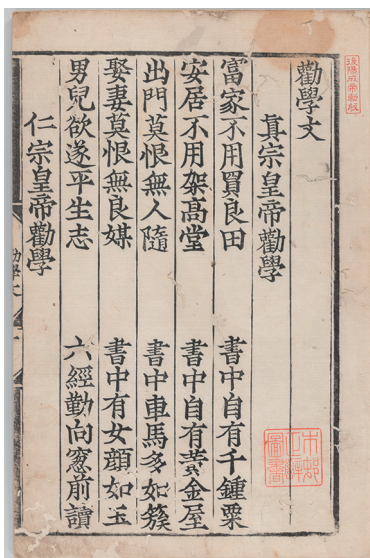 後陽成帝勅版
勸學文
真宗皇帝勸學
富家不用買良田 書中自有千鍾粟
安居不用架高堂 書中自有黄金屋
出門莫恨無人隨 書中車馬多如簇
娶妻莫恨無良媒 書中有女顔如玉
男兒欲遂平生志 六經勤向窓前讀
仁宗皇帝勸學
木邨正辭圖書